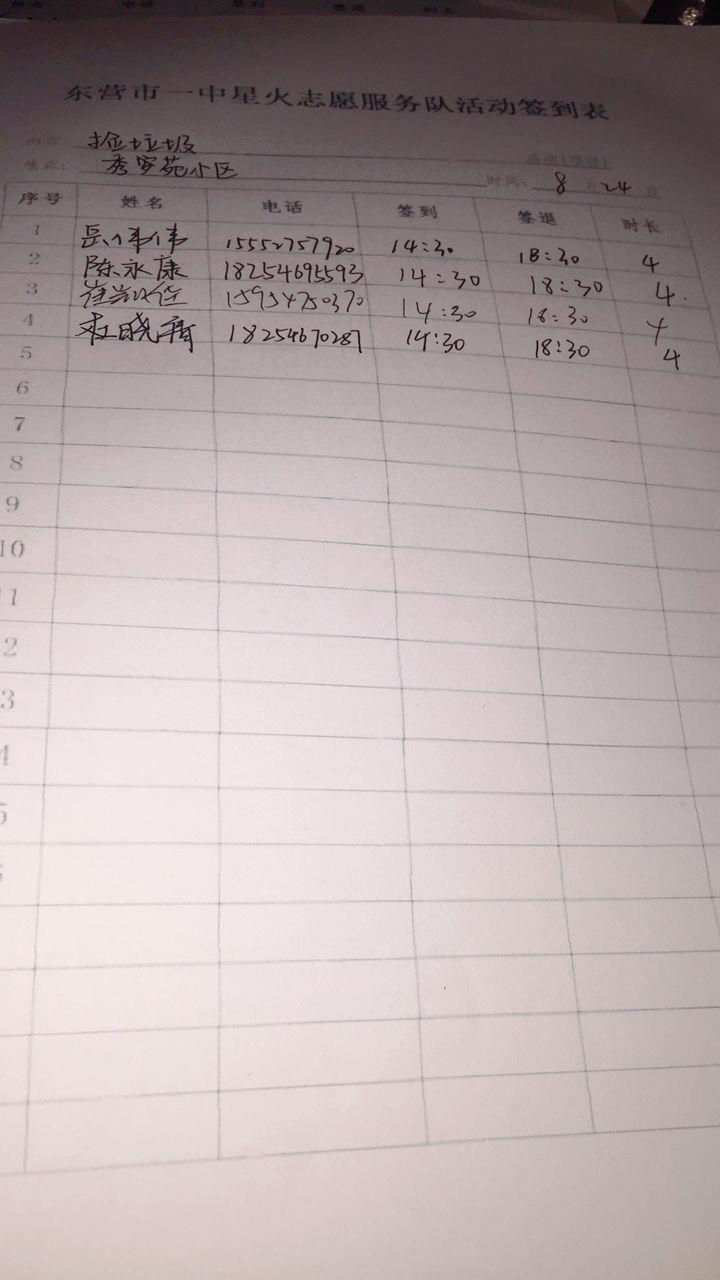 东营市一中星火志愿服务队活动签到表
内容: 捡垃圾
地点: 秀安苑小区 时间: 8月24日
序号 姓名 电话 签到 签退 时长
1 15552757920 14:30 18:30 4
2 陈永康 18254695593 14:30 18:30 4.
3 15954750370 14:30 18:30 4
4 杜晓 18254670287 14:30 18:30 4
5
6
7
8
9
10
1
2
3
4
5